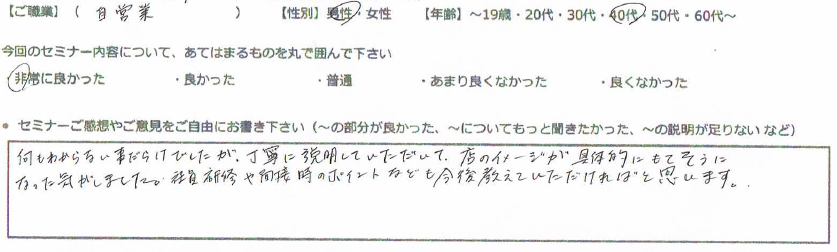 【ご職業】（ 自営業 ） 【性別】男性・女性 【年齢】～19歳・20代・30代・40代・50代・60代～
今回のセミナー内容について、あてはまるものを丸で囲んで下さい
・非常に良かった ・良かった ・普通 ・あまり良くなかった ・良くなかった
● セミナーご感想やご意見をご自由にお書き下さい（～の部分が良かった、～についてもっと聞きたかった、～の説明が足りない など）
何もわからない事だらけでしたが、丁寧に説明していただいて、店のイメージが具体的にもてそうに
なった気がしました。社員研修や面接時のポイントなども今後教えていただければと思います。